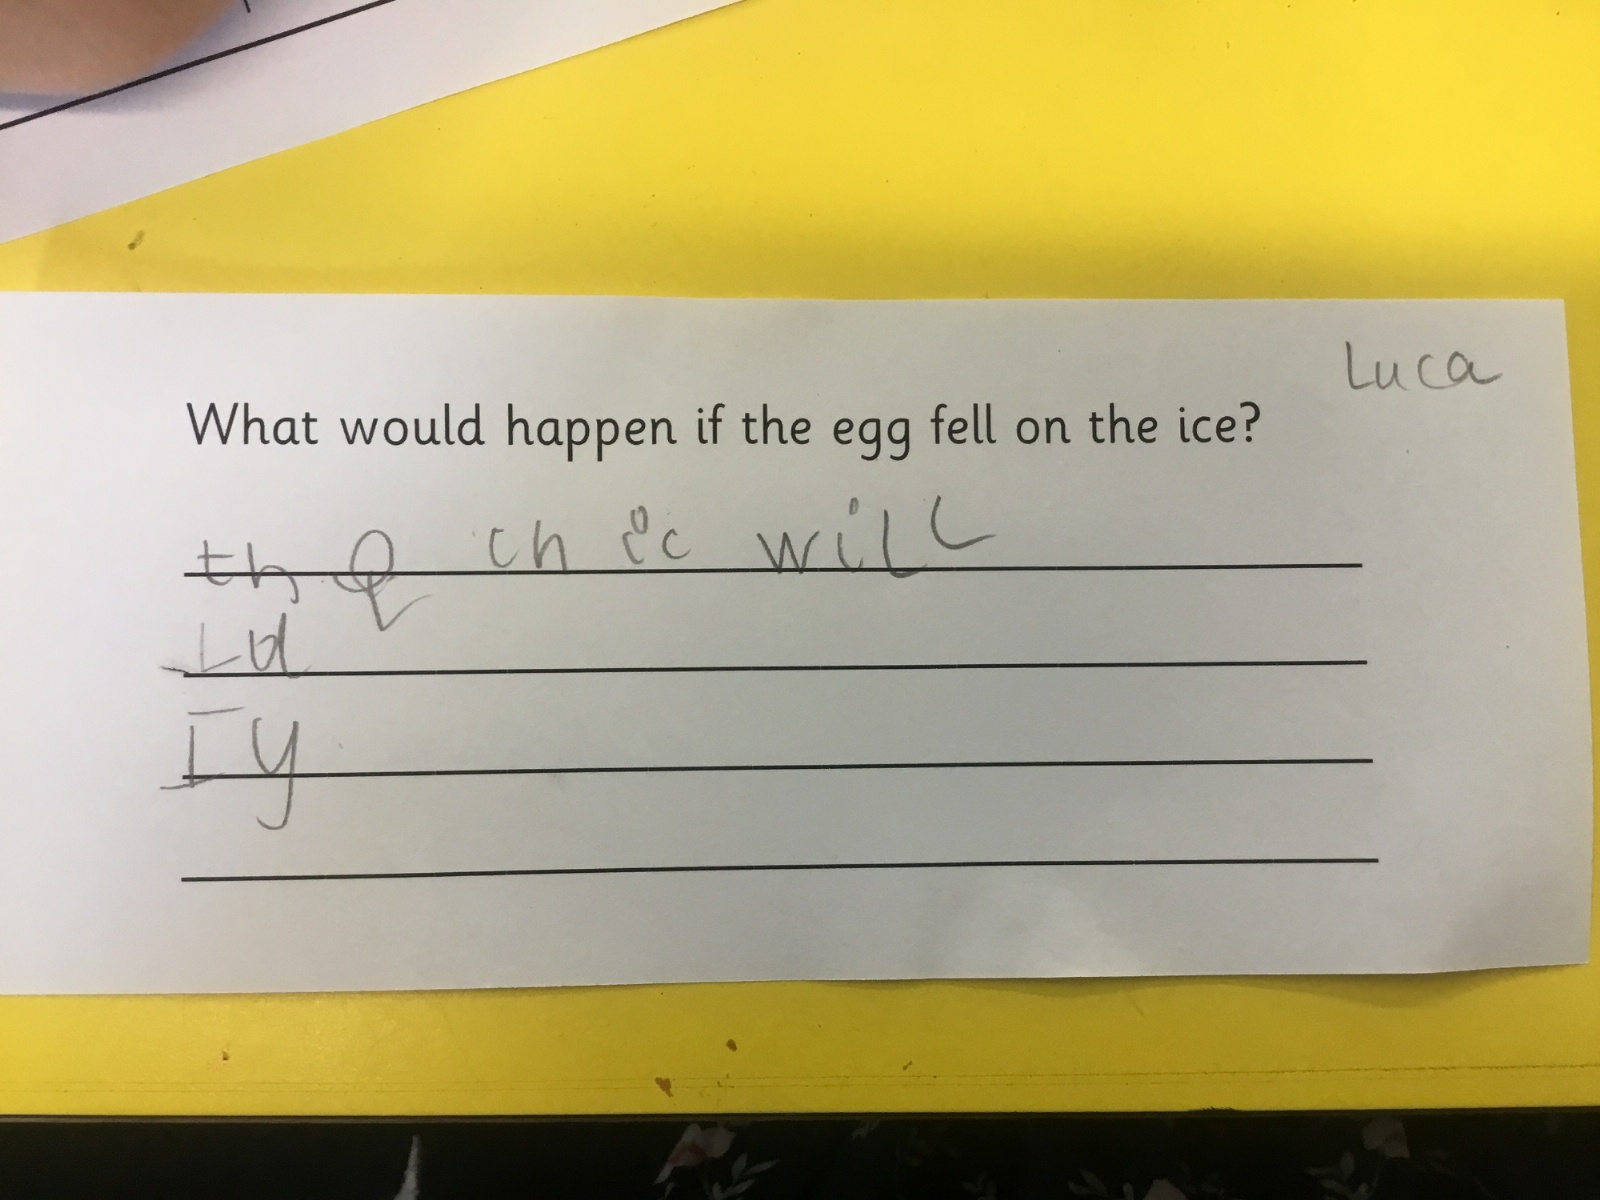 Luca
What would happen if the egg fell on the ice?
the chic will
Ld
Iy